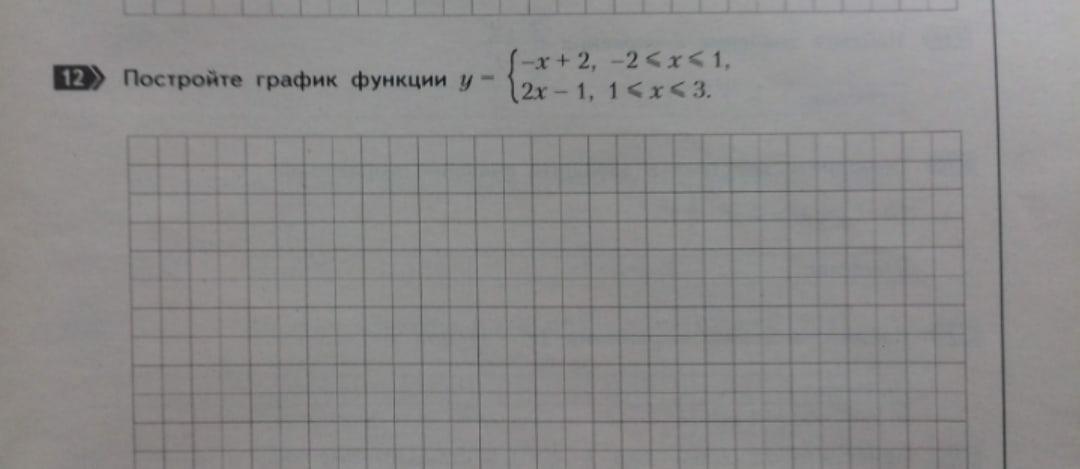 12 Постройте график функции y = {−x + 2, −2 ⩽ x ⩽ 1,
2x − 1, 1 ⩽ x ⩽ 3.